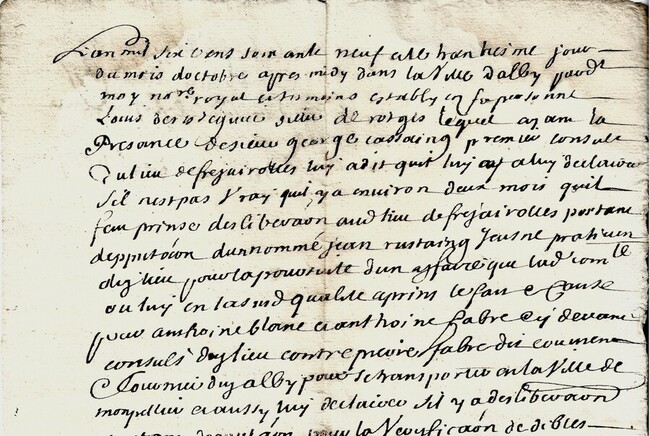 L'an mil six cens soixante neuf et le trantiesme jour
du mois doctobre apres midy dans la Ville dalby pardt
moy nore royal et tesmoins estably en sa personne
Louis de sieur de rotges lequel ayant la
Presance de sieur george cassaing premier consul
du lieu de frejairolles luy a dit quil luy a luy declairer
sil nest pas Vray quil y a environ deux mois quil
feu prinse deliberaon aud lieu de frejairolles portant
depputaon dun nommé jean rustaing jeusne praticien
dud lieu pour la poursuite dun affaire que lad comte
ou luy en lad quallite a prins le fait e cause
pour anthoine blanc et anthoine fabre cy devant
consuls dud lieu contre pierre fabre dit
dud alby pour se transporter en la Ville de
monpellier et aussy luy declairer sil y a deliberaon
pour la Veriffication de dibles